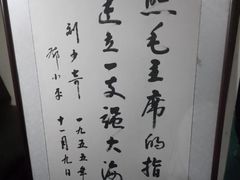 照毛主席的指
建立一支强大海
刘少奇
邓小平
一九五五年
十一月九日